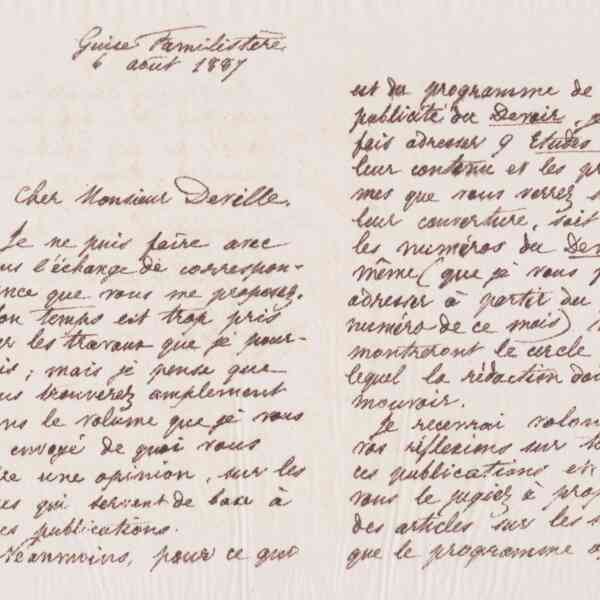 Guise Familistère
6 août 1887
Cher Monsieur Deville,
Je ne puis faire avec
ous l'échange de correspon-
ance que vous me proposez.
on temps est trop pris
ar les travaux que je pour-
is; mais je pense que
ous trouverez amplement
ans le volume que je vous
envoyé de quoi vous
re une opinion, sur les
es qui servent de base à
es publications.
Néanmoins, pour ce qui
est du programme de
publicité du Devoir, je
fais adresser 9 Etudes
leur contenu et les
mes que vous verrez
leur couverture, soit
les numéros du Dev
même (que je vous
adresser à partir du
numéro de ce mois)
montreront le cercle
lequel la rédaction doi
mouvoir.
Je recevrai volon
vos réflexions sur
ces publications et
vous le jugiez à prop
des articles sur les
que le programme